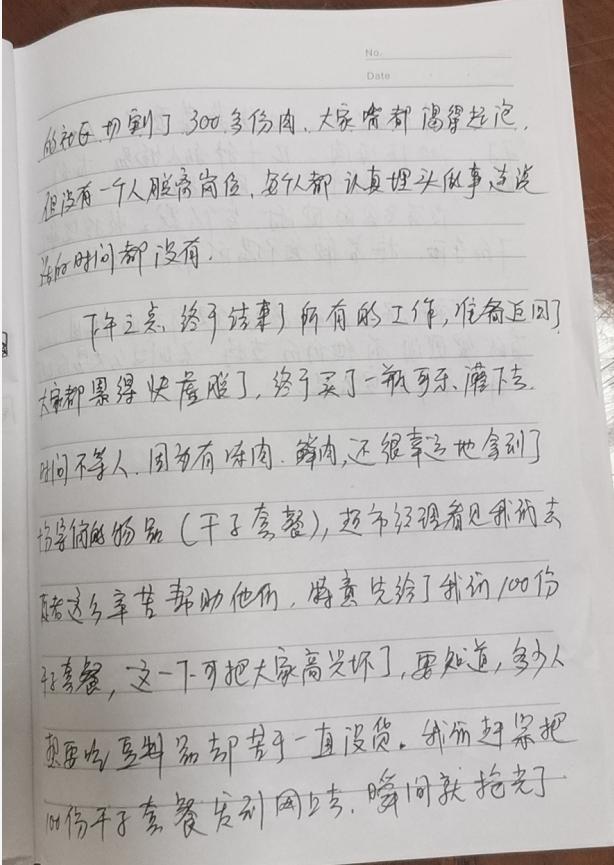 No.
Date
的社区切到了300多份肉、大家嘴都渴得起泡,
但没有一个人脱离岗位,每个人都认真埋头做事,连说
话的时间都没有.
下午三点,终于结束了所有的工作,准备返回了
大家都累得快虚脱了,终于买了一瓶可乐、灌下去.
时间不等人.因为有冻肉、鲜肉,还很幸运地拿到了
物品(干子套餐),超市经理看见我们去
这么辛苦帮助他们,特意先给了我们100份
干子套餐,这一下可把大家高兴坏了,要知道,多少人
想要吃豆制品却苦于一直没货。我们赶紧把
100份干子套餐发到网上去,瞬间就抢光了